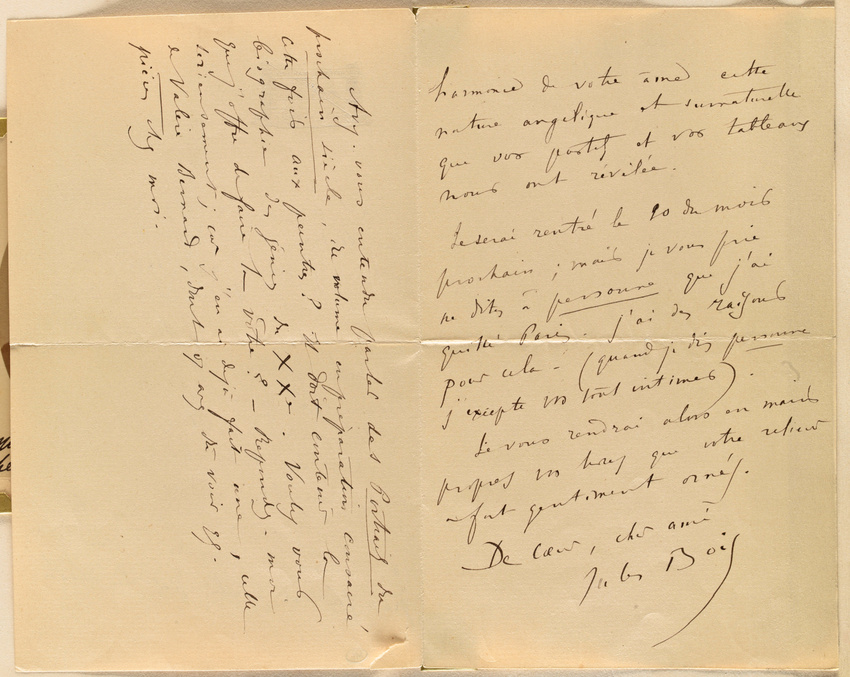 harmonie de votre âme cette
nature angélique et surnaturelle
que vos pastels et vos tableaux
nous ont révélée.
Je serai rentré le 20 du mois
prochain ; mais je vous prie
ne dites à personne que j'ai
quitté Paris. J'ai des raisons
pour cela - (quand je dis personne
j'excepte vos tout intimes).
Je vous rendrai alors en mains
propres vos livres que votre relieur
a fort gentiment ornés.
De cœur, cher ami
Jules Bois
Avez-vous entendu parler des Portraits du
prochain siècle, le volume en préparation consacré
cette fois aux peintres? Il doit contenir la
biographie des génies du XXe. Voulez vous
que j'offre de faire la vôtre? - Répondez-moi
sérieusement; car j'en ai déjà fait une, celle
de Valère Bernard, dont vous avez dû voir
pièces chez moi.